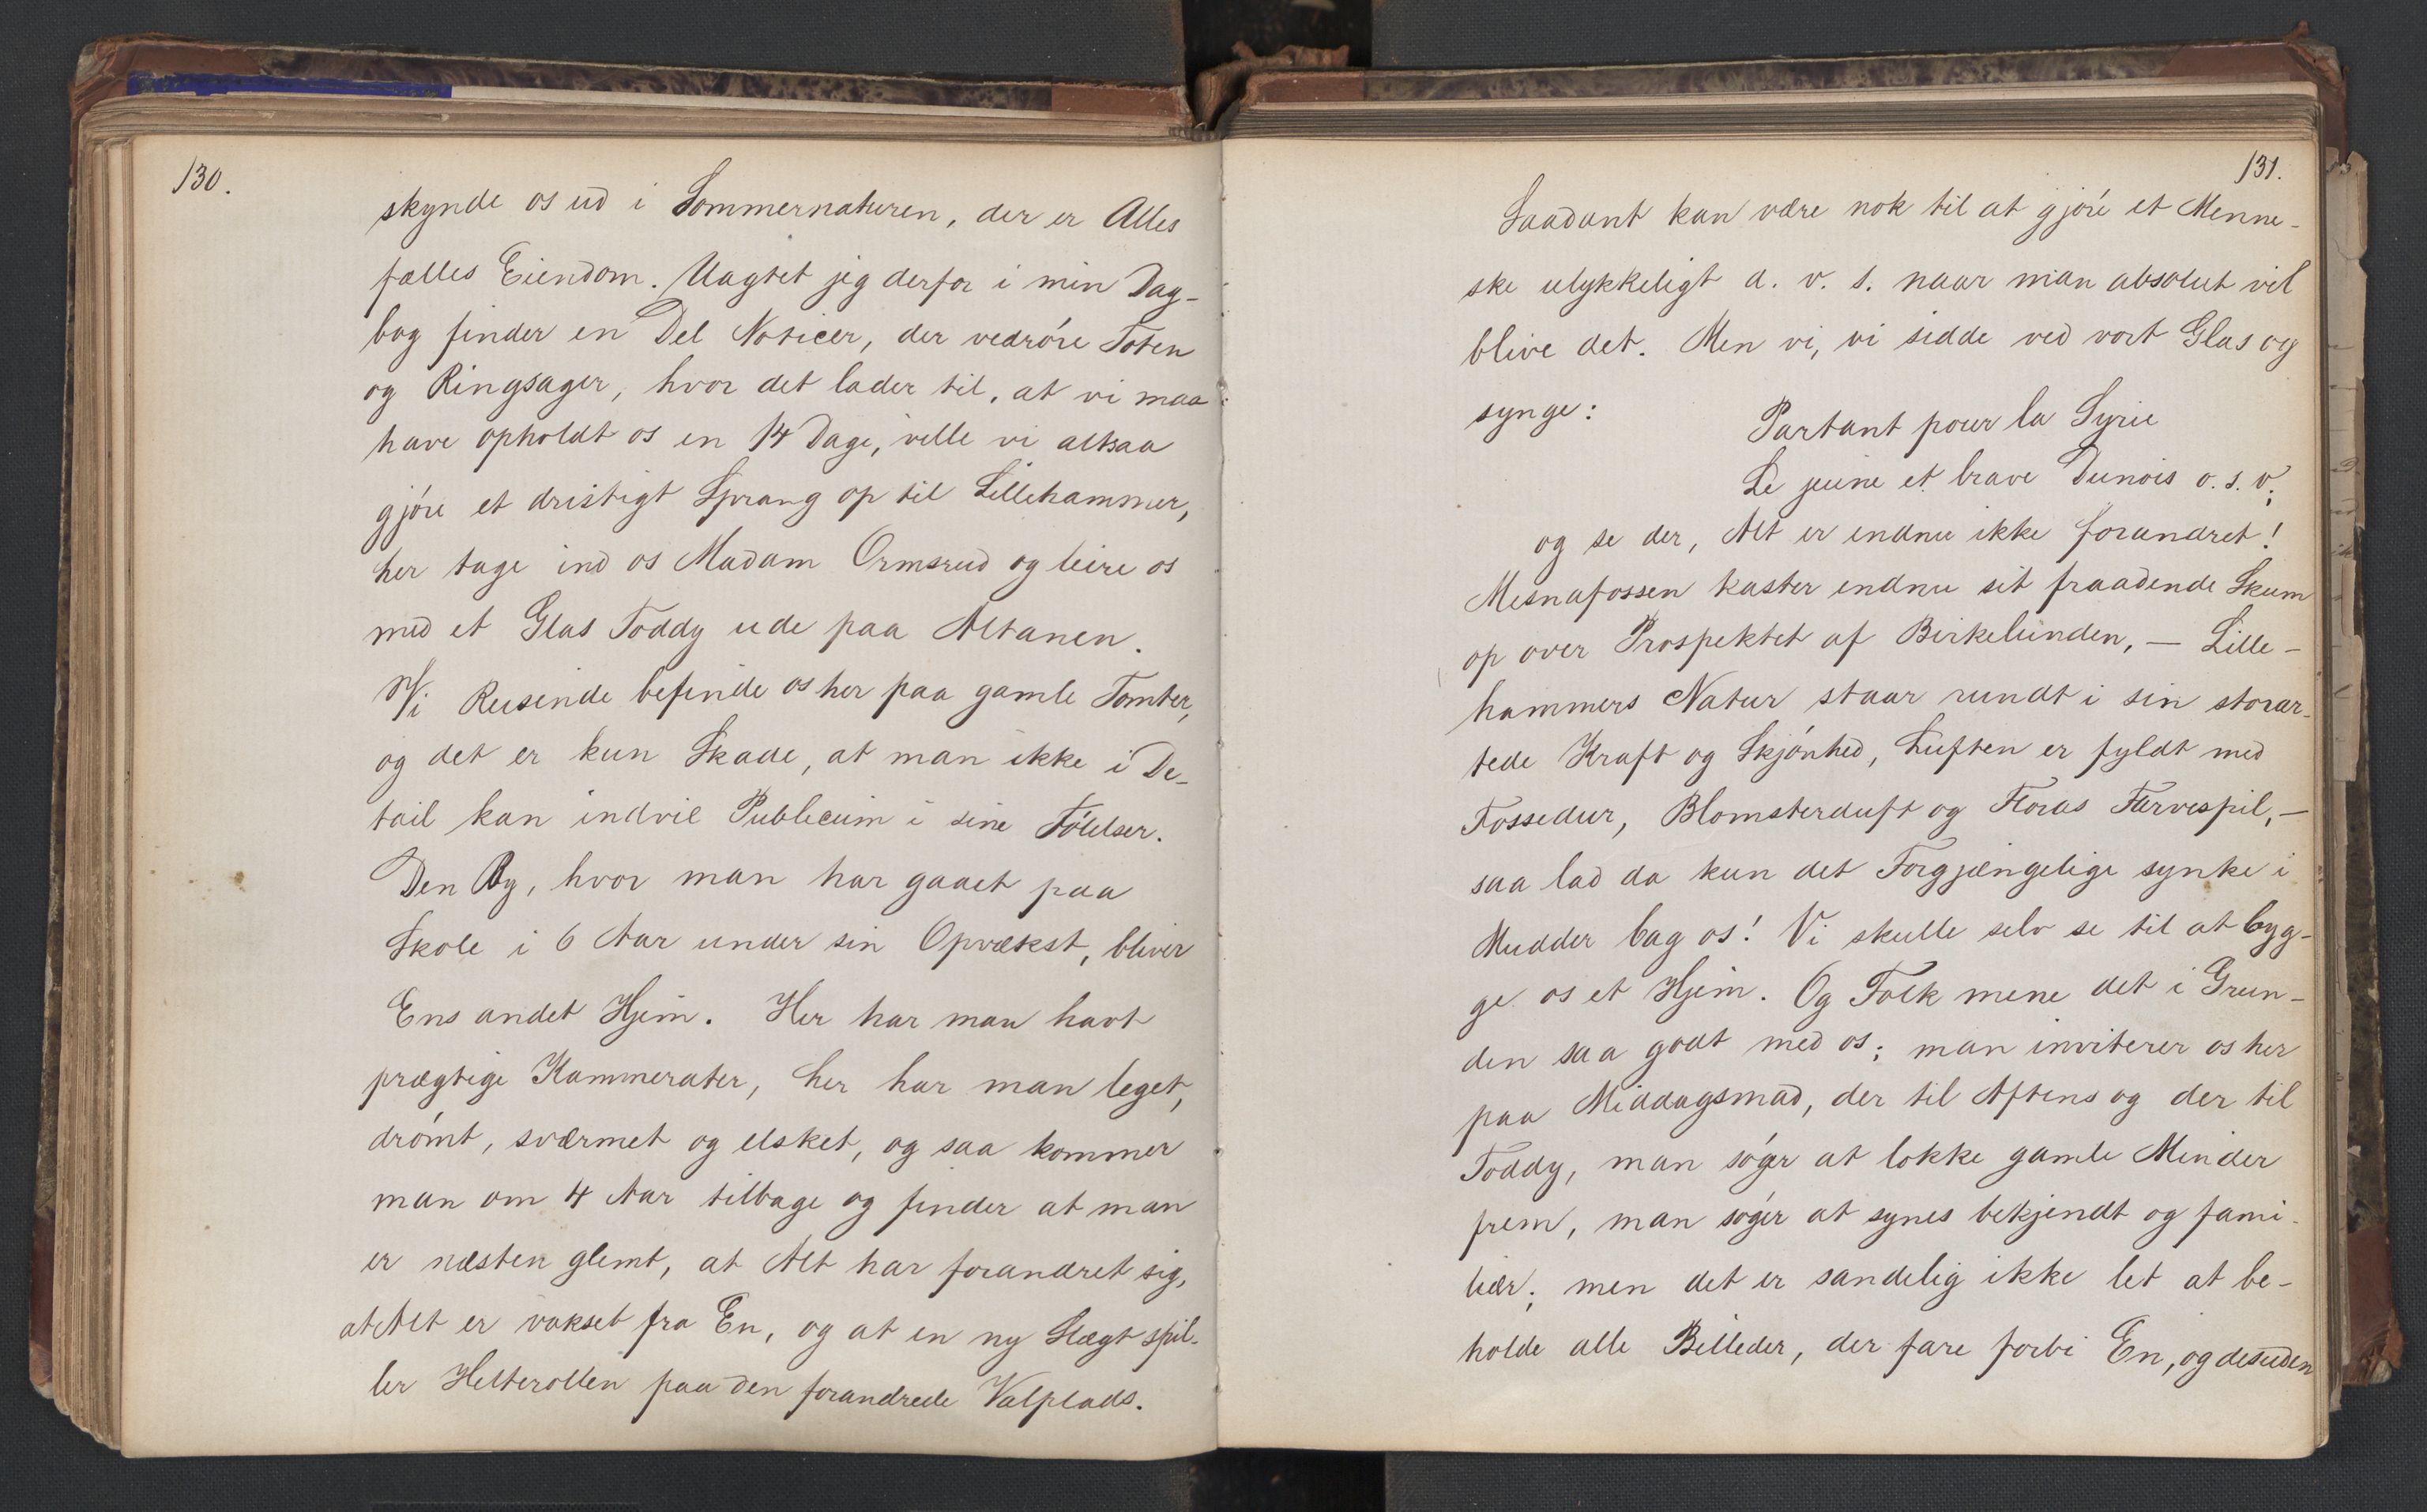 130.
skynde os ud i Sommernaturen, der er Alles
fælles Eiendom. Uagtet jeg derfor i min Dag-
bog finder en Del Noticer, der vedröre Toten
og Ringsager, hvor det lader til, at vi maa
have opholdt os en 14 Dage, ville vi altsaa
gjöre et dristigt Sprang op til Lillehammer,
her tage ind os Madam Ormsrud og leire os
med et Glas Toddy ude paa Altanen.
Vi Reisende befinde os her paa gamle Tomter,
og det er kun Skade, at man ikke i De-
tail kan indvie Publicum i sine Fölelser.
Den By, hvor man har gaaet paa
Skole i 6 Aar under sin Opvækst, bliver
Ens andet Hjem. Her har man havt
prægtige Kammerater, her har man leget,
drömt, sværmet og elsket, og saa kommer
man om 4 Aar tilbage og finder at man
er næsten glemt, at Alt har forandret sig,
at Alt er vokset fra En, og at en ny Slægt spil-
ler Helterollen paa den forandrede Valplads.
131.
Saadant kan være nok til at gjöre et Menne-
ske ulykkeligt d. v. s. naar man absolut vil
blive det. Men vi, vi sidde ved vort Glas og
synge:
Partant pour la Syrie
Le jeune et brave Dunois o. s. v;
og se der, Alt er endnu ikke forandret!
Mesnafossen kaster endnu sit fraadende Skum
op over Prospektet af Birkelunden, — Lille-
hammers Natur staar rundt i sin storar-
tede Kraft og Skjönhed, Luften er fyldt med
Fossedur, Blomsterduft og Floras Farvespil, —
saa lad da kun det Forgjængelige synke i
Mudder bag os! Vi skulle selv se til at byg-
ge os et Hjem. Og Folk mene det i Grun-
den saa godt med os; man inviterer os her
paa Middagsmad, der til Aftens og der til
Toddy, man söger at lokke gamle Minder
frem, man söger at synes bekjendt og fami-
liær; men det er sandelig ikke let at be-
holde alle Billeder, der fare forbi En, og desuden